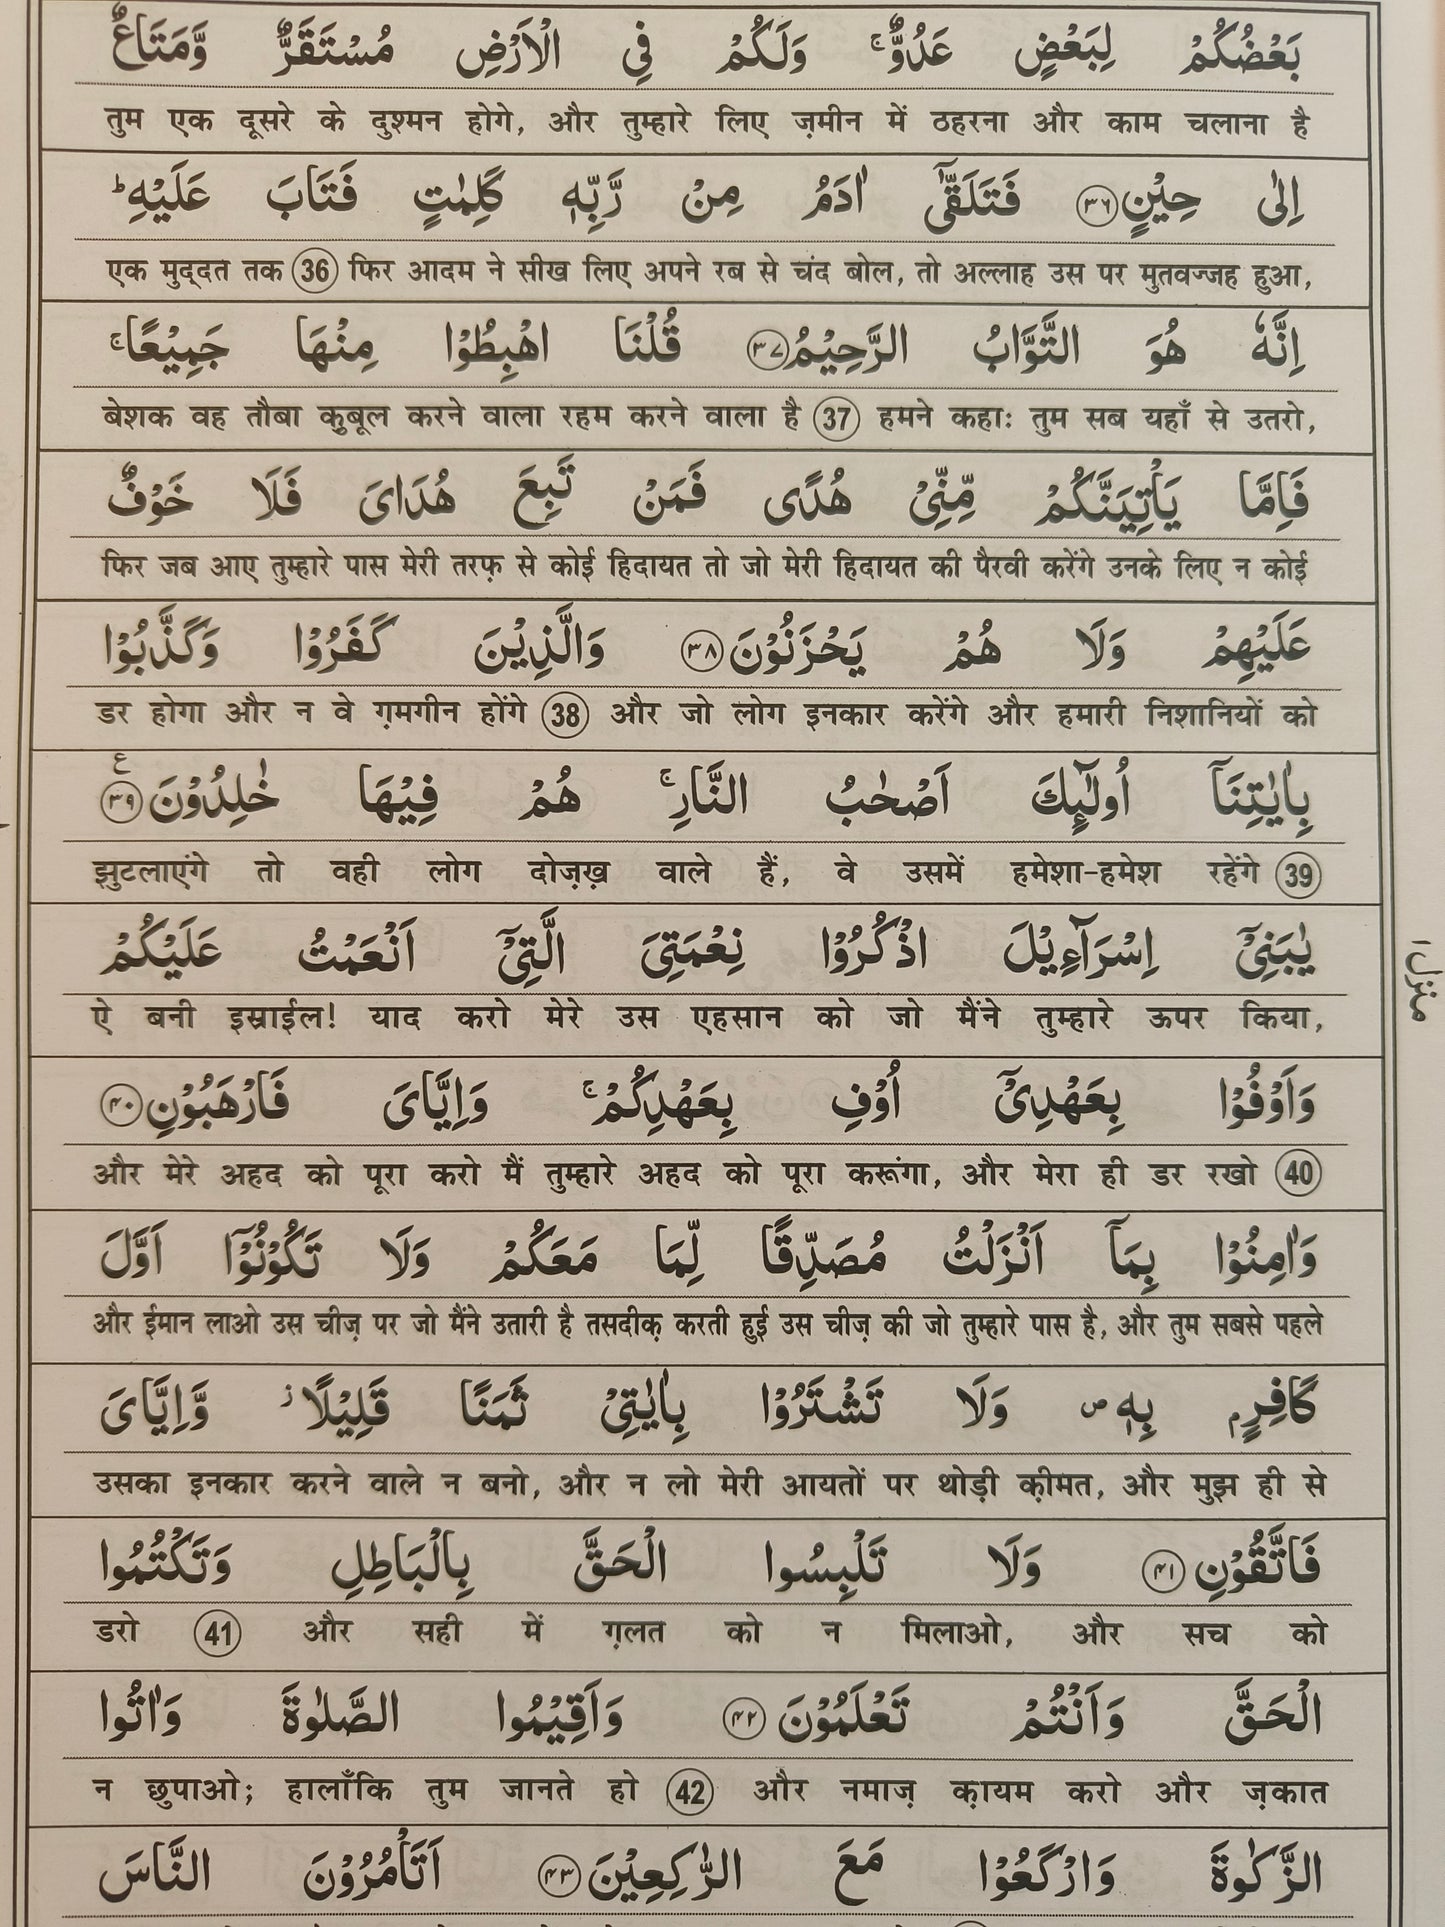 بَعْضُكُمْ لِبَعْضٍ عَدُوٌّ ۚ وَلَكُمْ فِي الْاَرْضِ مُسْتَقَرٌّ وَّمَتَاعٌ
तुम एक दूसरे के दुश्मन होगे, और तुम्हारे लिए ज़मीन में ठहरना और काम चलाना है
اِلٰى حِيْنٍ ۳۶ فَتَلَقّٰۤى اٰدَمُ مِنْ رَّبِّهٖ كَلِمٰتٍ فَتَابَ عَلَيْهِ ؕ
एक मुद्दत तक 36 फिर आदम ने सीख लिए अपने रब से चंद बोल, तो अल्लाह उस पर मुतवज्जह हुआ,
اِنَّهٗ هُوَ التَّوَّابُ الرَّحِيْمُ ۳۷ قُلْنَا اهْبِطُوْا مِنْهَا جَمِيْعًا ۚ
बेशक वह तौबा क़ुबूल करने वाला रहम करने वाला है 37 हमने कहाः तुम सब यहाँ से उतरो,
فَاِمَّا يَاْتِيَنَّكُمْ مِّنِّيْ هُدًى فَمَنْ تَبِعَ هُدَايَ فَلَا خَوْفٌ
फिर जब आए तुम्हारे पास मेरी तरफ़ से कोई हिदायत तो जो मेरी हिदायत की पैरवी करेंगे उनके लिए न कोई
عَلَيْهِمْ وَلَا هُمْ يَحْزَنُوْنَ ۳۸ وَالَّذِيْنَ كَفَرُوْا وَكَذَّبُوْا
डर होगा और न वे ग़मगीन होंगे 38 और जो लोग इनकार करेंगे और हमारी निशानियों को
بِاٰيٰتِنَاۤ اُولٰٓئِكَ اَصْحٰبُ النَّارِ ۚ هُمْ فِيْهَا خٰلِدُوْنَ ۳۹ ع
झुटलाएंगे तो वही लोग दोज़ख़ वाले हैं, वे उसमें हमेशा-हमेश रहेंगे 39
يٰبَنِيْۤ اِسْرَآءِيْلَ اذْكُرُوْا نِعْمَتِيَ الَّتِيْۤ اَنْعَمْتُ عَلَيْكُمْ
ऐ बनी इस्राईल! याद करो मेरे उस एहसान को जो मैंने तुम्हारे ऊपर किया,
منزل ۱
وَاَوْفُوْا بِعَهْدِيْۤ اُوْفِ بِعَهْدِكُمْ ۚ وَاِيَّايَ فَارْهَبُوْنِ ۴۰
और मेरे अहद को पूरा करो मैं तुम्हारे अहद को पूरा करूंगा, और मेरा ही डर रखो 40
وَاٰمِنُوْا بِمَاۤ اَنْزَلْتُ مُصَدِّقًا لِّمَا مَعَكُمْ وَلَا تَكُوْنُوْۤا اَوَّلَ
और ईमान लाओ उस चीज़ पर जो मैंने उतारी है तसदीक़ करती हुई उस चीज़ की जो तुम्हारे पास है, और तुम सबसे पहले
كَافِرٍۭ بِهٖ ۪ وَلَا تَشْتَرُوْا بِاٰيٰتِيْ ثَمَنًا قَلِيْلًا ؗ وَّاِيَّايَ
उसका इनकार करने वाले न बनो, और न लो मेरी आयतों पर थोड़ी क़ीमत, और मुझ ही से
فَاتَّقُوْنِ ۴۱ وَلَا تَلْبِسُوا الْحَقَّ بِالْبَاطِلِ وَتَكْتُمُوا
डरो 41 और सही में ग़लत को न मिलाओ, और सच को
الْحَقَّ وَاَنْتُمْ تَعْلَمُوْنَ ۴۲ وَاَقِيْمُوا الصَّلٰوةَ وَاٰتُوا
न छुपाओ; हालाँकि तुम जानते हो 42 और नमाज़ क़ायम करो और ज़कात
الزَّكٰوةَ وَارْكَعُوْا مَعَ الرّٰكِعِيْنَ ۴۳ اَتَاْمُرُوْنَ النَّاسَ